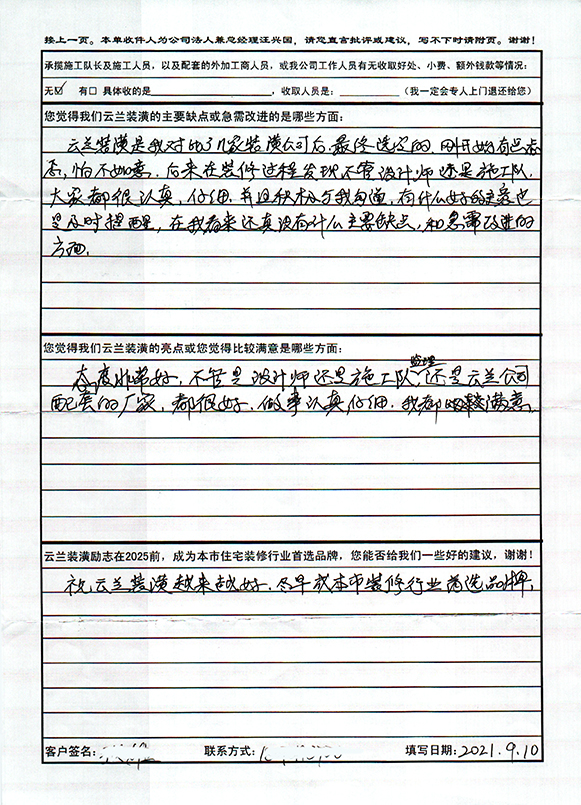 接上一页。本单收件人为公司法人兼总经理汪兴国，请您直言批评或建议，写不下时请附页。谢谢！
承揽施工队长及施工人员，以及配套的外加工商人员，或我公司工作人员有无收取好处、小费、额外钱款等情况：
无☑ 有□ 具体收的是____________________，收取人员是：__________（我一定会专人上门退还给您）
您觉得我们云兰装潢的主要缺点或急需改进的是哪些方面：
云兰装潢是我对比了几家装潢公司后，最终选定的，刚开始有点
怕不如意，后来在装修过程发现不管设计师还是施工队，
大家都很认真，仔细，并且积极与我沟通，有什么好的主意也
是及时提醒，在我看来还真没有什么主要缺点，和急需改进的
方面。
您觉得我们云兰装潢的亮点或您觉得比较满意是哪些方面：
态度非常好，不管是设计师还是施工队，监理，还是云兰公司
配套的厂家，都很好，做事认真仔细，我都比较满意。
云兰装潢励志在2025前，成为本市住宅装修行业首选品牌，您能否给我们一些好的建议，谢谢！
祝云兰装潢越来越好，尽早成本市装修行业首选品牌，
客户签名： 联系方式： 填写日期：2021.9.10